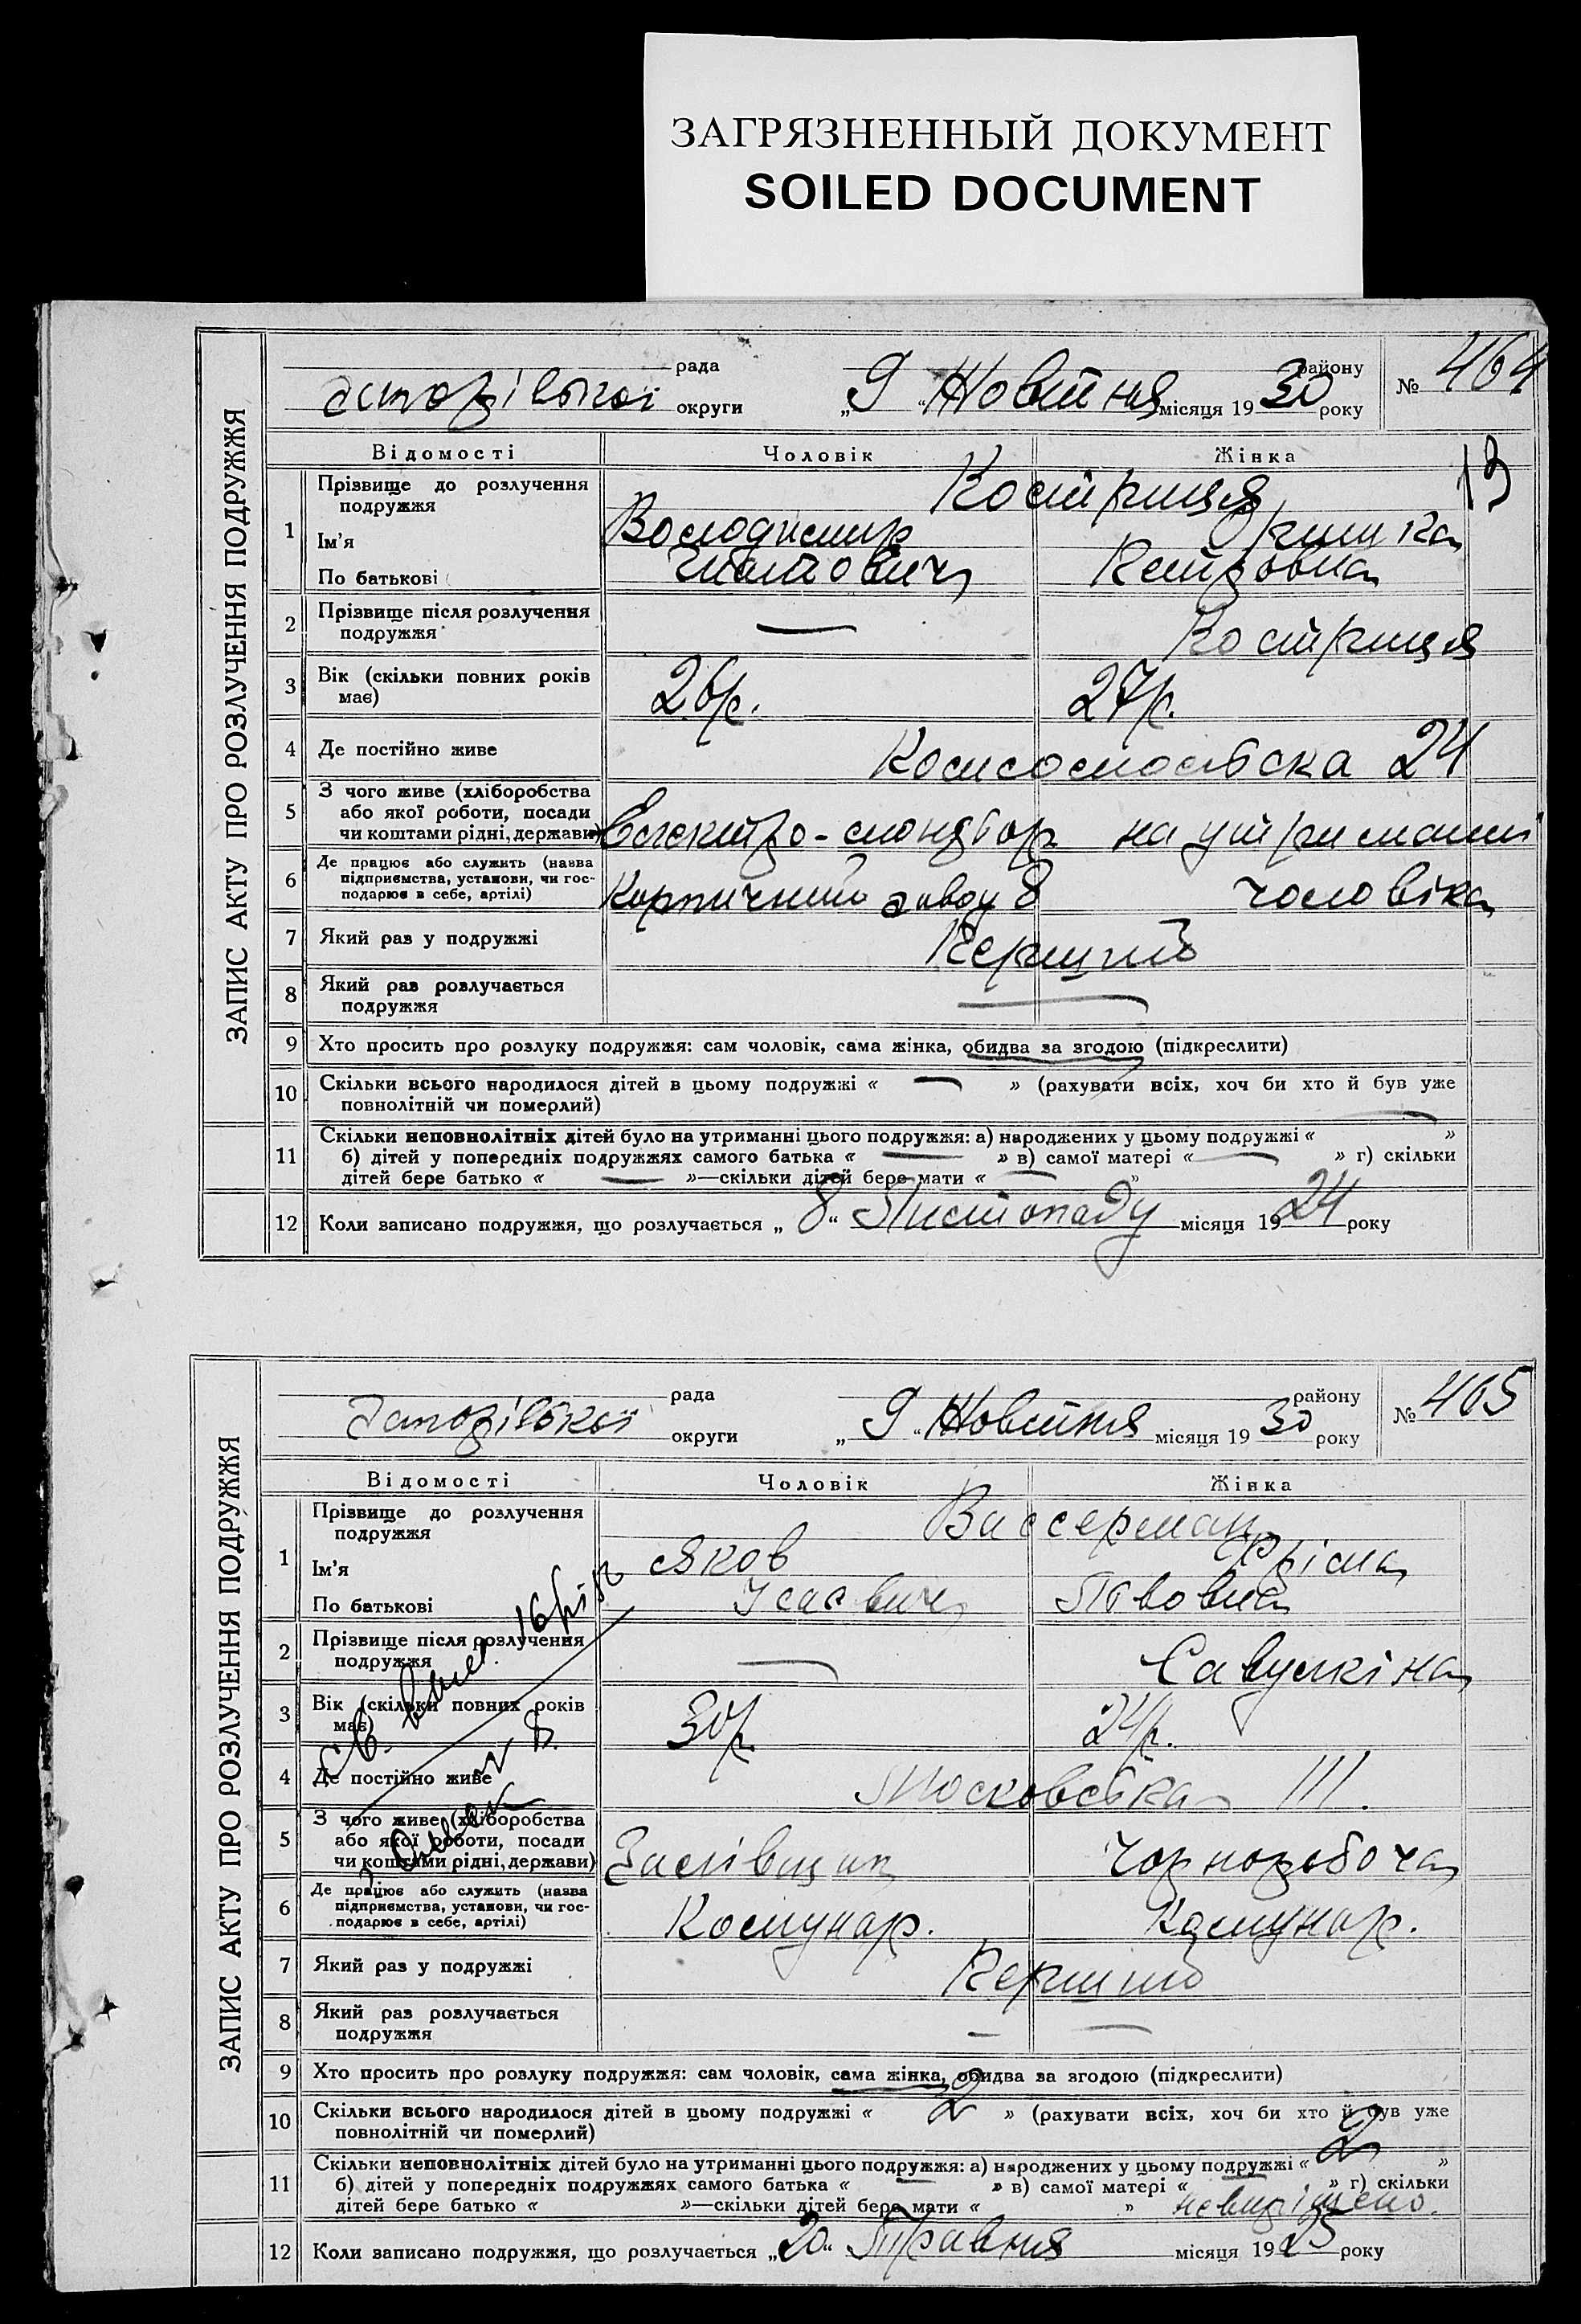 ЗАГРЯЗНЕННЫЙ ДОКУМЕНТ
SOILED DOCUMENT
ЗАПИС АКТУ ПРО РОЗЛУЧЕННЯ ПОДРУЖЖЯ
рада району
округи „9“ Жовтня місяця 1930 року № 464
Відомості Чоловік Жінка
13
1 Прізвище до розлучення подружжя Костриця
Ім'я Володимир
По батькові Петровна
2 Прізвище після розлучення подружжя — Костриця
3 Вік (скільки повних років має) 26р. 27р.
4 Де постійно живе 24
5 З чого живе (хліборобства
або якої роботи, посади
чи коштами рідні, держави) Електро-монтьор на утриманні
6 Де працює або служить (назва
підприємства, установи, чи гос-
подарює в себе, артілі) завод 8 чоловіка
7 Який раз у подружжі Перший
8 Який раз розлучається
подружжя —
9 Хто просить про розлуку подружжя: сам чоловік, сама жінка, обидва за згодою (підкреслити)
10 Скільки всього народилося дітей в цьому подружжі « — » (рахувати всіх, хоч би хто й був уже
повнолітній чи померлий)
11 Скільки неповнолітніх дітей було на утриманні цього подружжя: а) народжених у цьому подружжі « — »
б) дітей у попередніх подружжях самого батька « — » в) самої матері « — » г) скільки
дітей бере батько « — »—скільки дітей бере мати « — »
12 Коли записано подружжя, що розлучається „8“ Листопаду місяця 1924 року
ЗАПИС АКТУ ПРО РОЗЛУЧЕННЯ ПОДРУЖЖЯ
рада району
Запорізької округи „9“ Жовтня місяця 1930 року № 465
Відомості Чоловік Жінка
1 Прізвище до розлучення
подружжя Вассерман
Ім'я Яков
По батькові Ісаєвич
2 Прізвище після розлучення
подружжя — Савулкіна
3 Вік (скільки повних років
має) 30р. 24р.
4 Де постійно живе Московська 111.
5 З чого живе (хліборобства
або якої роботи, посади
чи коштами рідні, держави) Чорноробоча
6 Де працює або служить (назва
підприємства, установи, чи гос-
подарює в себе, артілі) Комунар. Комунар.
7 Який раз у подружжі Перший
8 Який раз розлучається
подружжя — —
9 Хто просить про розлуку подружжя: сам чоловік, сама жінка, обидва за згодою (підкреслити)
10 Скільки всього народилося дітей в цьому подружжі « 2 » (рахувати всіх, хоч би хто й був уже
повнолітній чи померлий)
11 Скільки неповнолітніх дітей було на утриманні цього подружжя: а) народжених у цьому подружжі « 2 »
б) дітей у попередніх подружжях самого батька « — » в) самої матері « — » г) скільки
дітей бере батько « »—скільки дітей бере мати « » невирішено.
12 Коли записано подружжя, що розлучається „20“ Травня місяця 1925 року